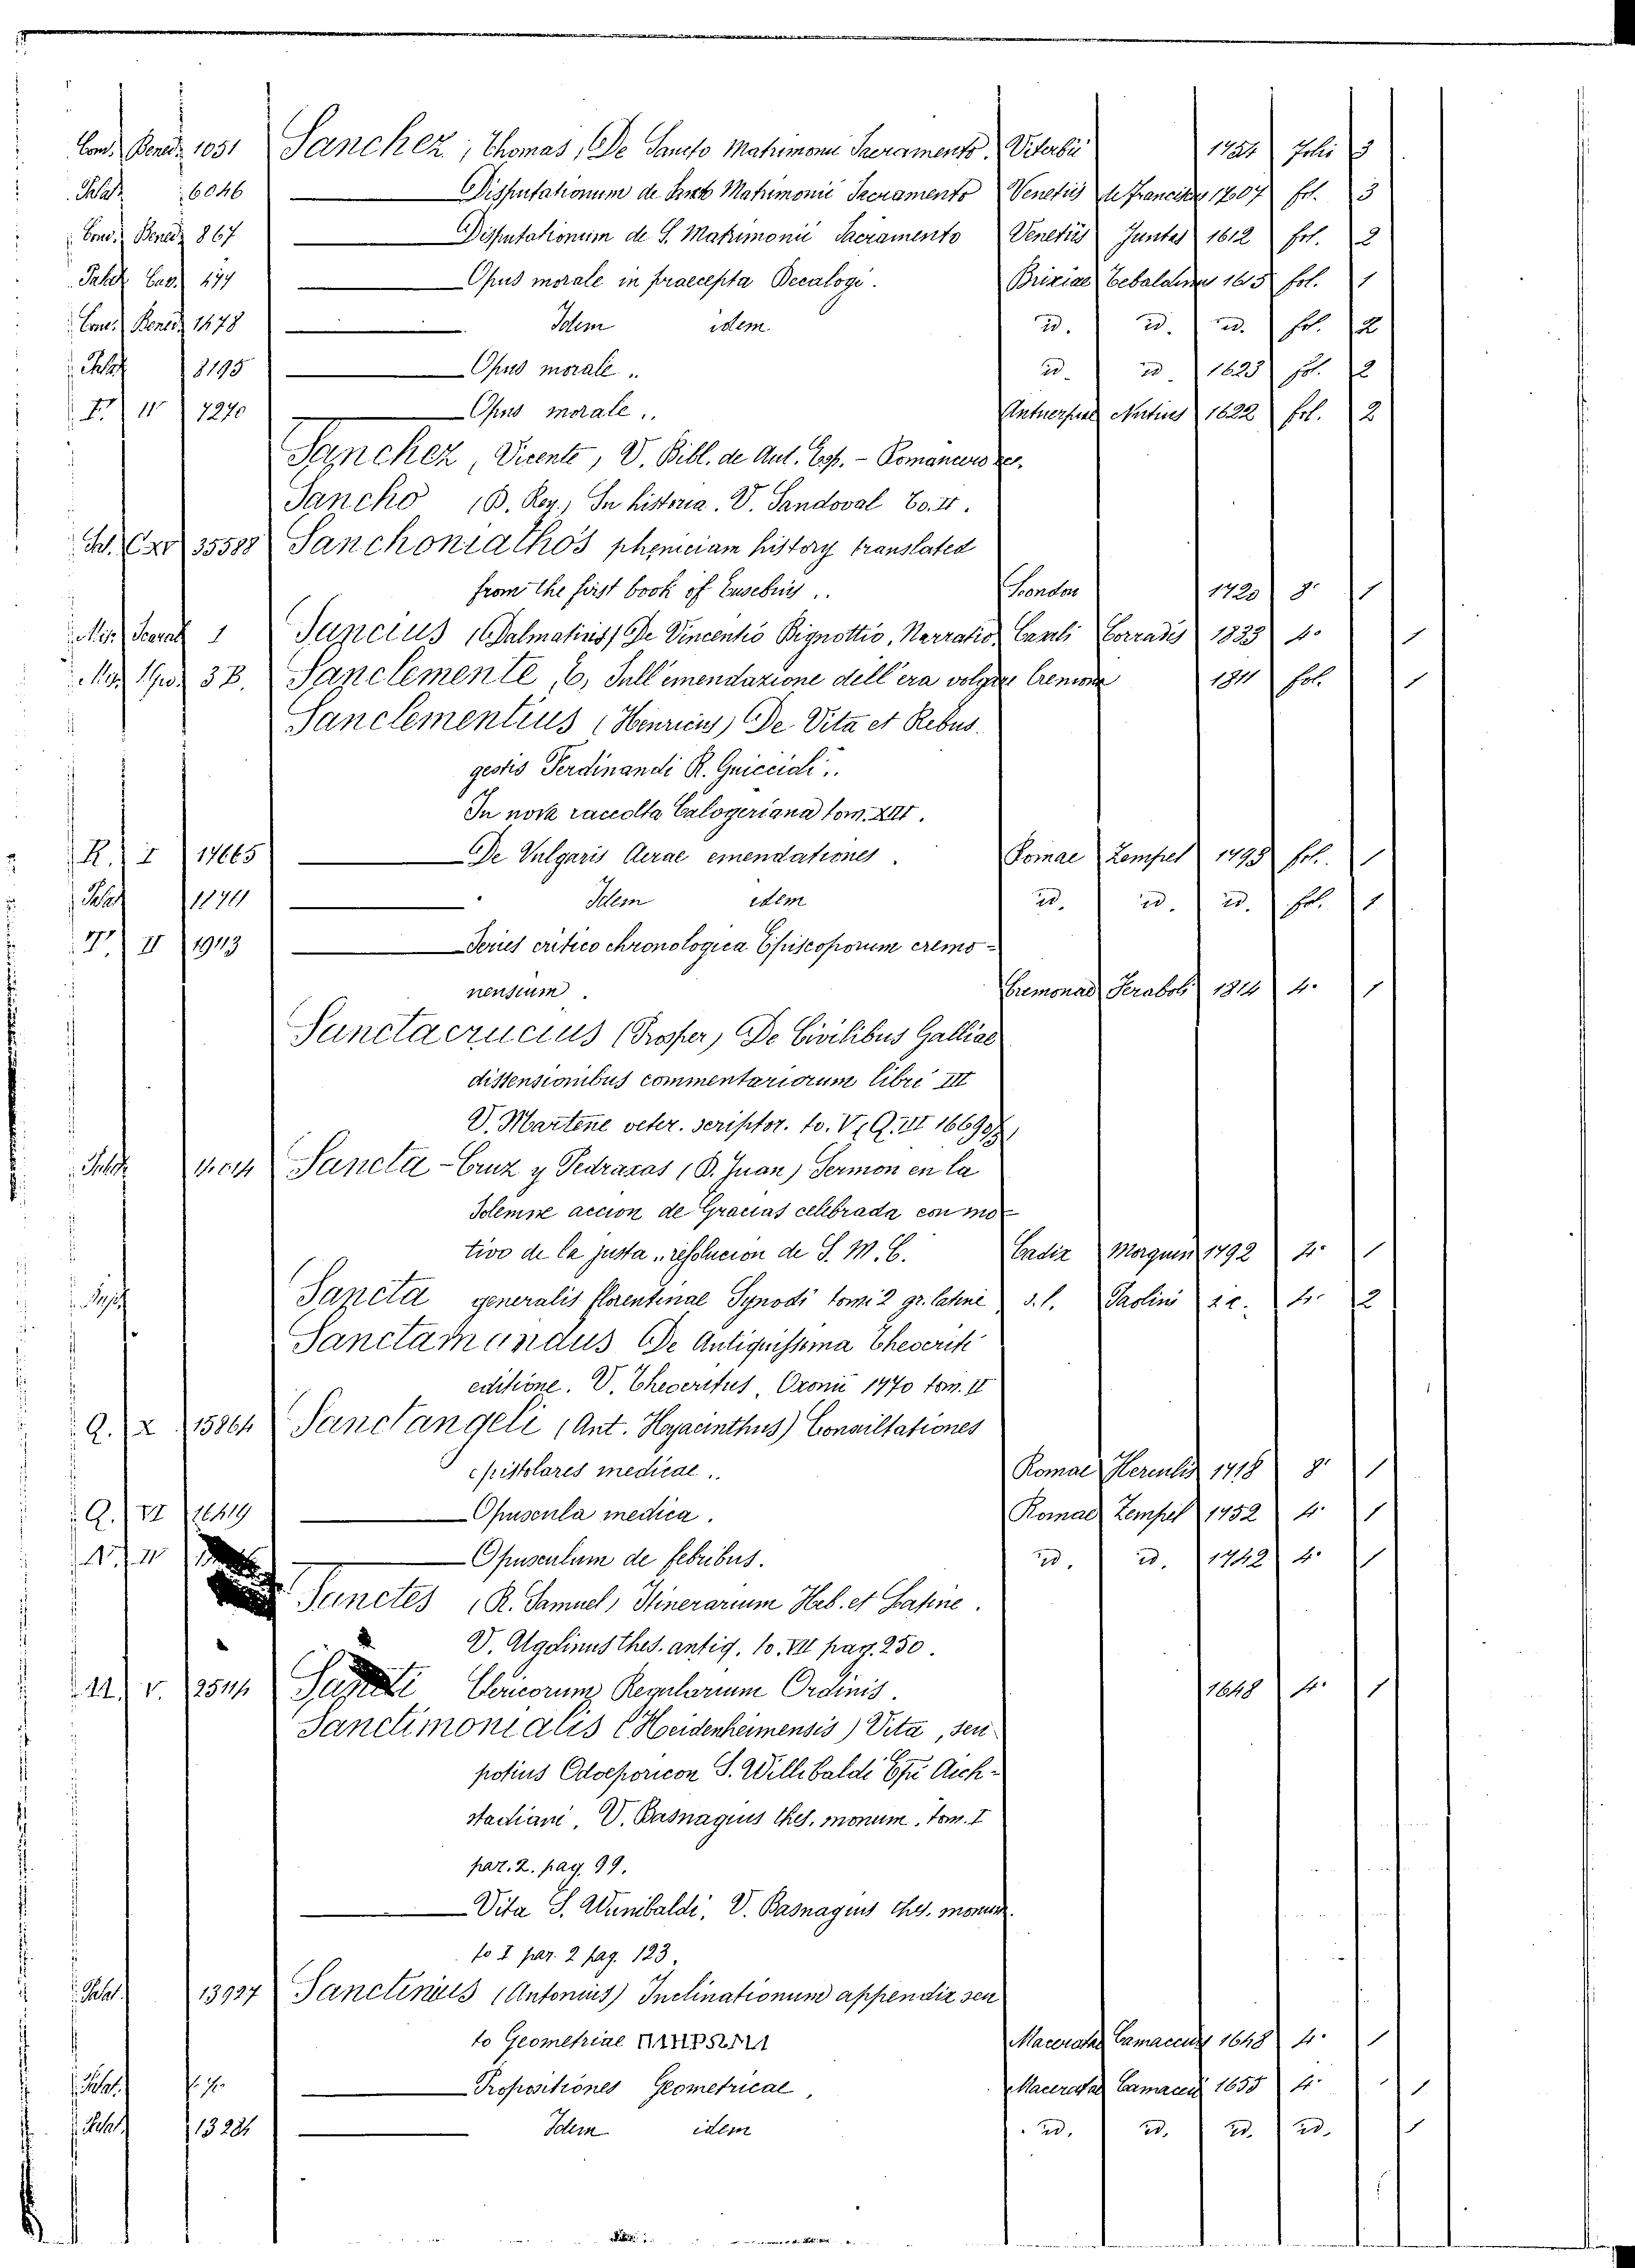 Conv. Bened. 1051 Sanchez, Thomas, De Sancto Matrimonii Sacramento. Viterbii 1754 Folio 3
Palat. 6046 Disputationum de Sancto Matrimonii Sacramento Venetiis de Franciscis 1607 fol. 3
Conv. Bened. 867 Disputationum de S. Matrimonii Sacramento Venetiis Juntas 1612 fol. 2
Opus morale in praecepta Decalogi. Brixiae Tebaldinus 1615 fol. 1
Conv. Bened. 1478 Idem idem id. id. id. fol. 2
Palat 8195 Opus morale.. id. id. 1623 fol. 2
7270 Opus morale.. Antuerpiae Nutius 1622 fol. 2
Sanchez, Vicente, V. Bibl. de Aut. Esp. - Romancero
Sancho (D. Rey) In historia. V. Sandoval To. II.
35588 Sanchoniatho's phenician history translated
from the first book of Eusebius.. London 1720 8° 1
1 Sancius (Dalmatius) De Vincentio Pignottio, Narratio Corradi 1833 4° 1
Sanclemente, E, Sull'emendazione dell'era volgare Cremona 1811 fol. 1
Sanclementius (Henricus) De Vita et Rebus
gestis Ferdinandi R.
In nova raccolta Calogeriana tom. XIII.
R. I 17665 De Vulgaris Aerae emendationes. Romae Zempel 1793 fol. 1
Palat Idem idem id. id. id. fol. 1
II 1943 Series critico chronologica Episcoporum cremo-
nensium. Cremonae 1814 4° 1
Sanctacrucius (Prosper) De Civilibus Galliae
dissensionibus commentariorum libri III
V. Martene veter. scriptor. to. V. (Q. III 16690)
Sancta-Cruz y Pedraxas (D. Juan) Sermon en la
Solemne accion de Gracias celebrada con mo-
tivo de la justa.. resolucion de S. M. C. Cadiz 1792 4° 1
Sancta generalis florentinae Synodi tomi 2 gr. latine s. l. Paolini s. a. 4° 2
Sanctamandus De Antiquissima Theocriti
editione. V. Theocritus, Oxonii 1770 tom. II
Q. X 15864 Sanctangeli (Ant. Hyacinthus) Consultationes
epistolares medicae.. Romae Herculis 1718 8° 1
Q. VI Opuscula medica. Romae Zempel 1752 4° 1
Opusculum de febribus. id. id. 1742 4° 1
Sanctes (R. Samuel) Itinerarium Heb. et Latine.
V. Ugolinus thes. antiq. to. VII pag. 250.
Clericorum Regularium Ordinis. 1648 4° 1
Sanctimonialis (Heidenheimensis) Vita, seu
potius Odoeporicon S. Willibaldi Epi Aich-
stadiani, V. Basnagius thes. monum. tom. I
par. 2. pag. 99.
Vita S. Wunibaldi, V. Basnagius thes. monum.
to I par. 2 pag. 123.
Palat. 13927 Sanctinius (Antonius) Inclinationum appendix seu
to Geometriae Maceratae Camaccius 1648 4° 1
Palat. Propositiones Geometricae, Maceratae Camacci 1655 4° 1
Palat. Idem idem id. id. id. id. 1